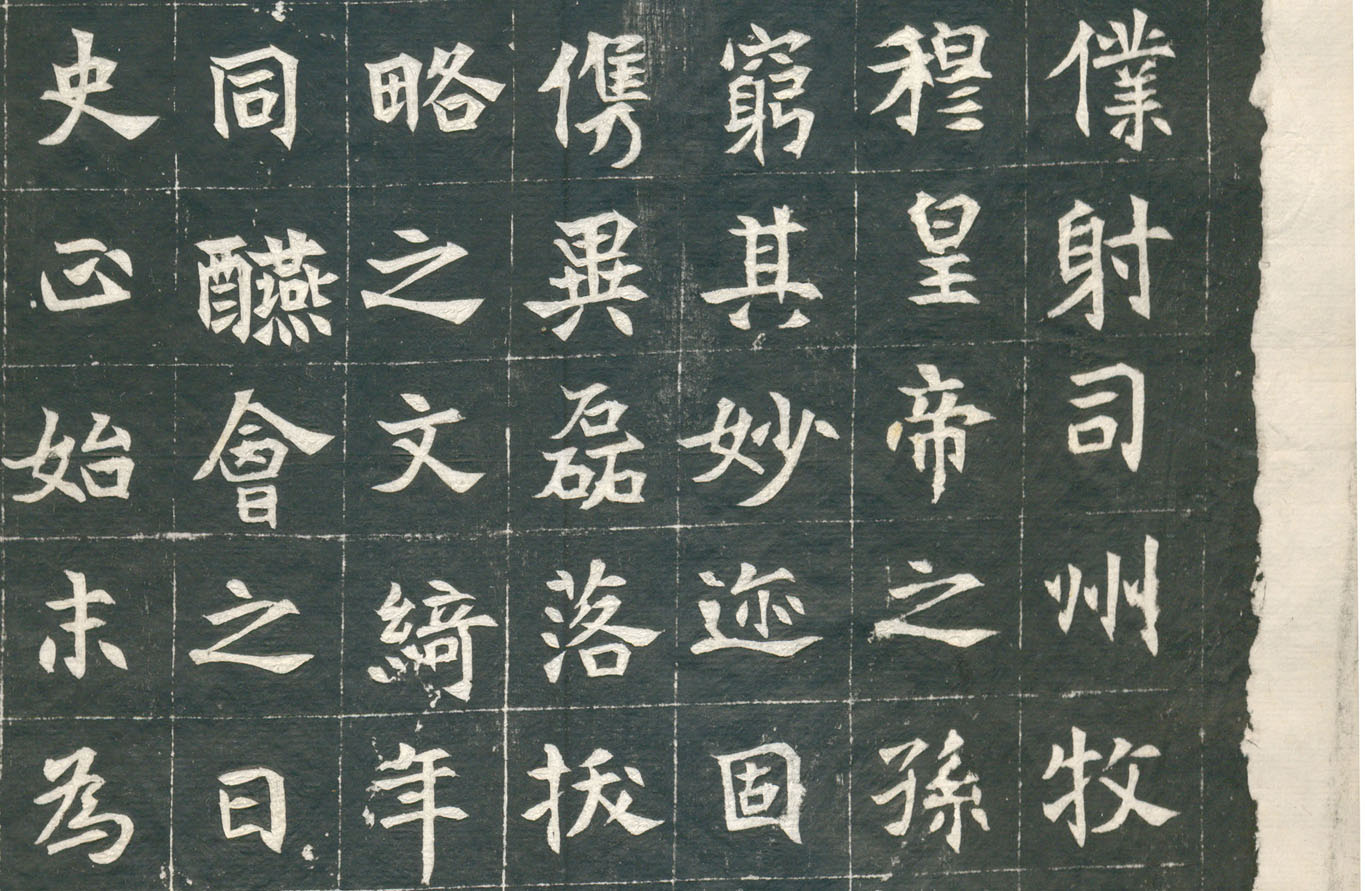 僕射司州牧
穆皇帝之孫
窮其妙迹固
儁異磊落拔
略之文綺年
同醼會之日
史正始末為